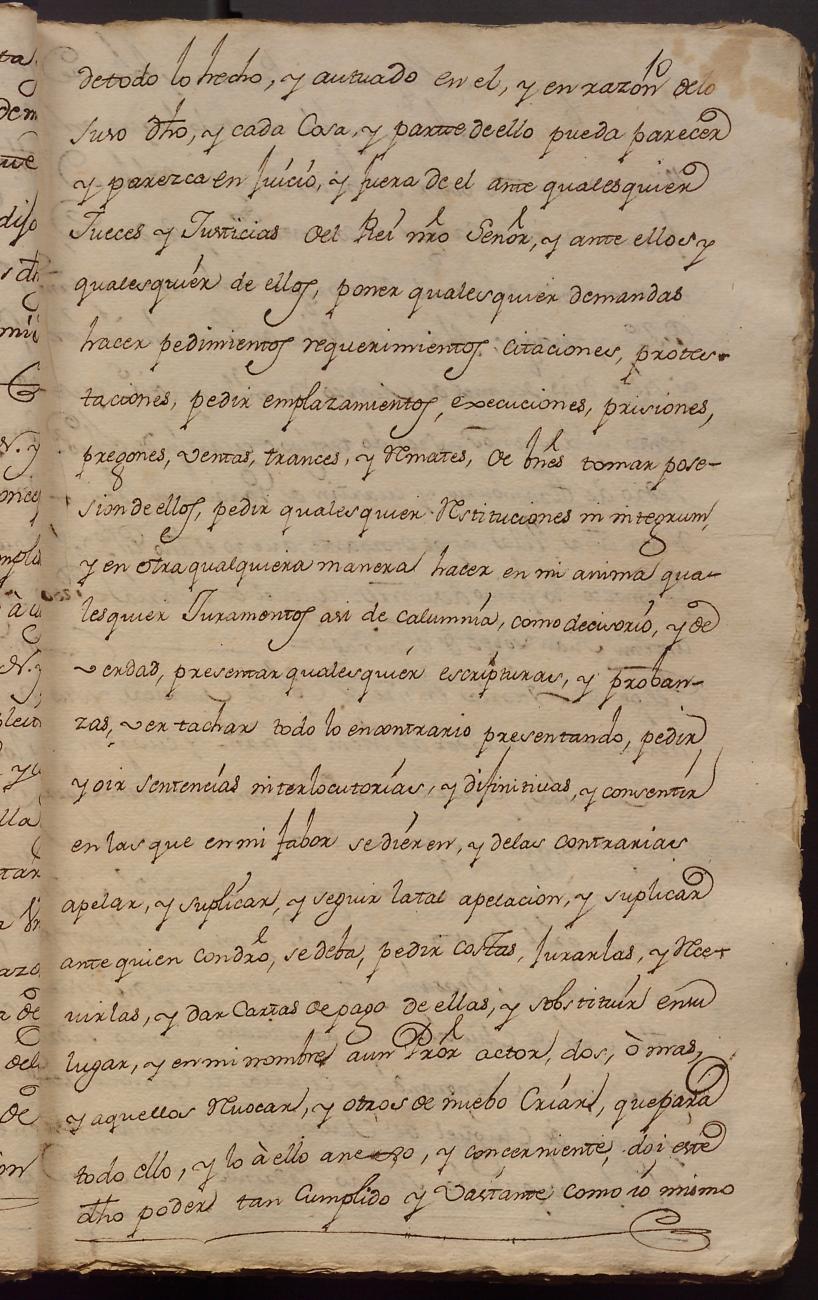 10
de todo lo hecho, y autuado en el, y en razón de lo
suso dho, y cada Cosa, y parte de ello pueda parecer
y parezca en juicio, y fuera de el ante qualesquier
Jueces y Justicias del Rei nro Señor, y ante ellos y
qualesquier de ellos, poner qualesquier demandas
hacer pedimientos requerimientos citaciones, protes-
taciones, pedir emplazamientos, execuciones, prisiones,
pregones, ventas, trances, y Rmates, de bnes tomar pose-
sion de ellos, pedir qualesquier Rstituciones in integrum,
y en otra qualquiera manera hacer en mi anima qua-
lesquier Juramentos asi de calumnia, como decisorio, y de
verdad, presentar qualesquier escripturas, y proban-
zas, ver tachar todo lo encontrario presentando, pedir,
y oir sentencias interlocutorias, y difinitivas, y consentir
en las que en mi fabor se dieren, y delas contrarias
apelar, y suplicar, y seguir la tal apelacion, y suplicar
ante quien con dro, se deba, pedir costas, jurarlas, y Rce-
virlas, y dar Cartas de pago de ellas, y sobstituir en su
lugar, y en mi nombre a un Pror actor, dos, ò mas,
y aquellos Rvocar, y otros de nuebo Criar, que para
todo ello, y lo à ello anexo, y concerniente, doi este
dho poder tan Cumplido y Vastante como io mismo